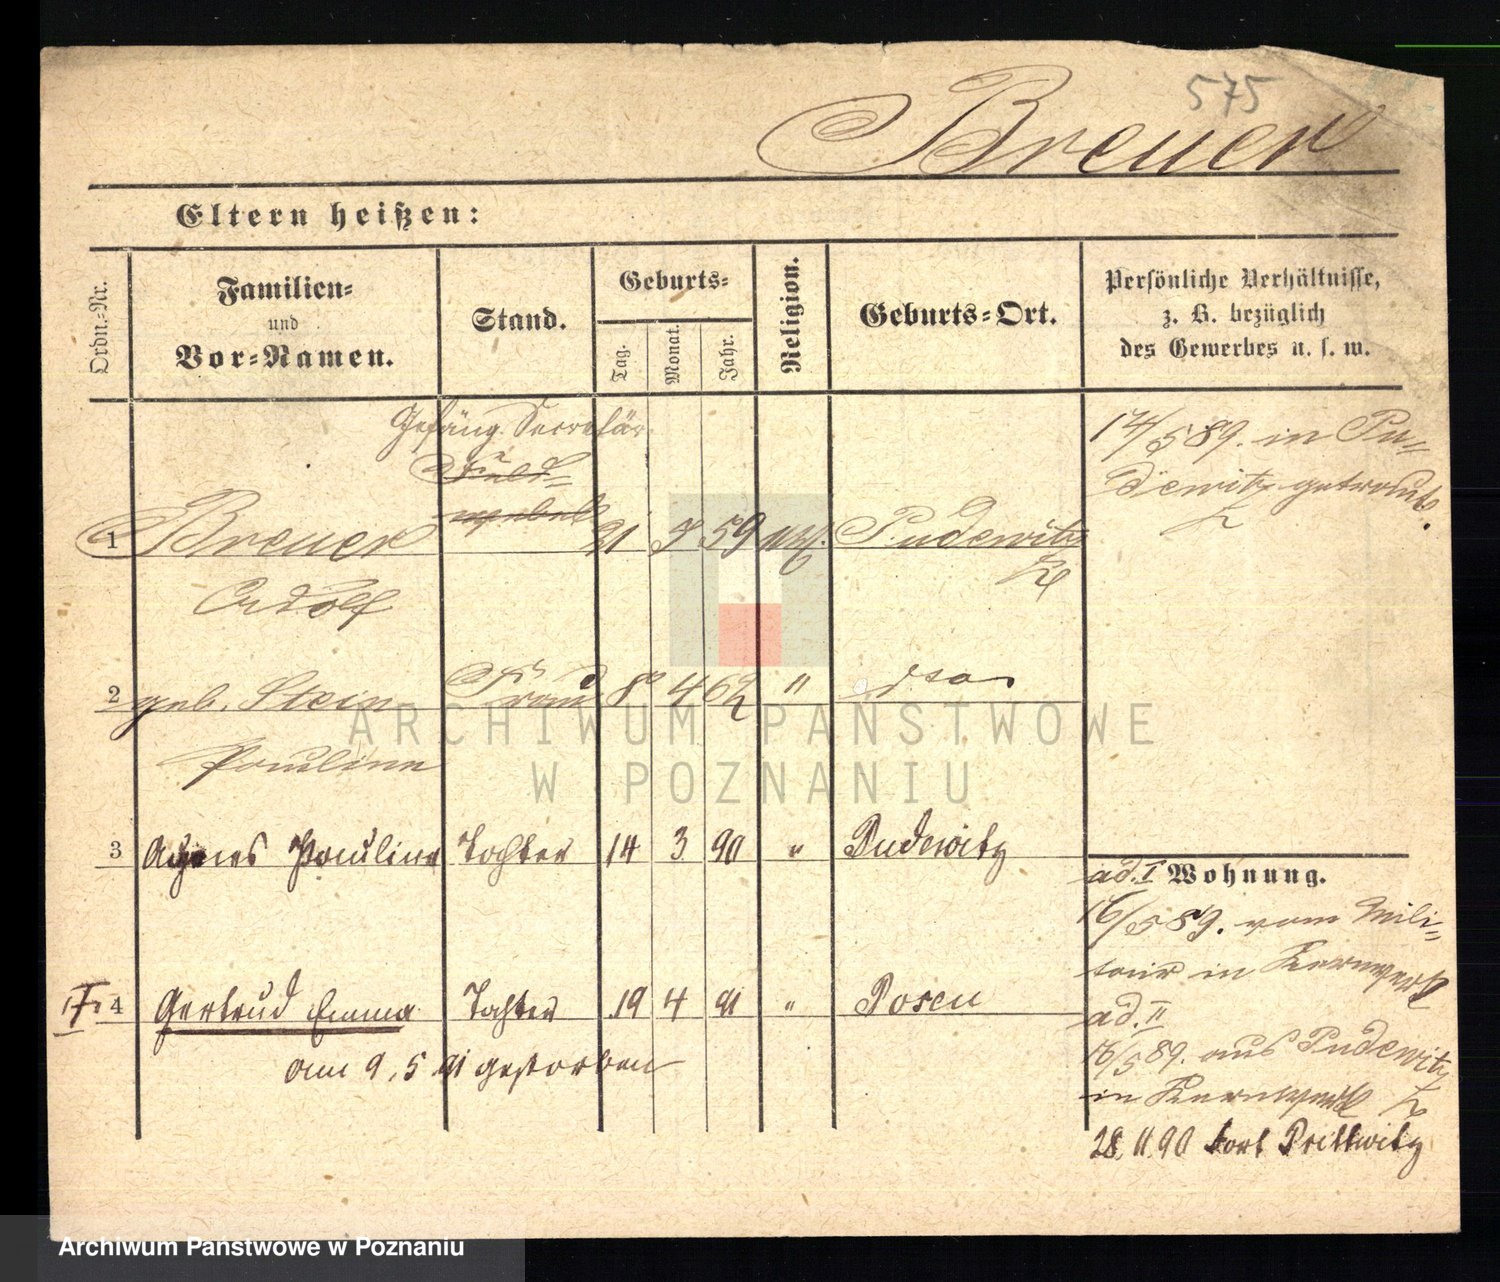 575
Breuer
Eltern heißen:
Ordn.-Nr.
Familien-
und
Vor-Namen.
Stand.
Geburts-
Tag.
Monat.
Jahr.
Religion.
Geburts-Ort.
Persönliche Verhältnisse,
z. B. bezüglich
des Gewerbes u. s. w.
Gefäng. Secretär
Feld-
webel
1 Breuer 21 59 Pudewitz
Adolf
17/5 89. in Pu-
dewitz getraut.
2 geb. Stein Frau 8 4 62 " dto
Pauline
3 Agnes Pauline Tochter 14 3 90 " Pudewitz
4 Gertrud Emma Tochter 19 4 91 " Posen
am 9. 5 91 gestorben
ad. I Wohnung.
16/5 89. vom Mili-
tair in Kernwerk
ad. II
18/5 89. aus Pudewitz
in Kernwerk
28. 11. 90 Fort Prittwitz
ARCHIWUM PAŃSTWOWE
W POZNANIU
Archiwum Państwowe w Poznaniu